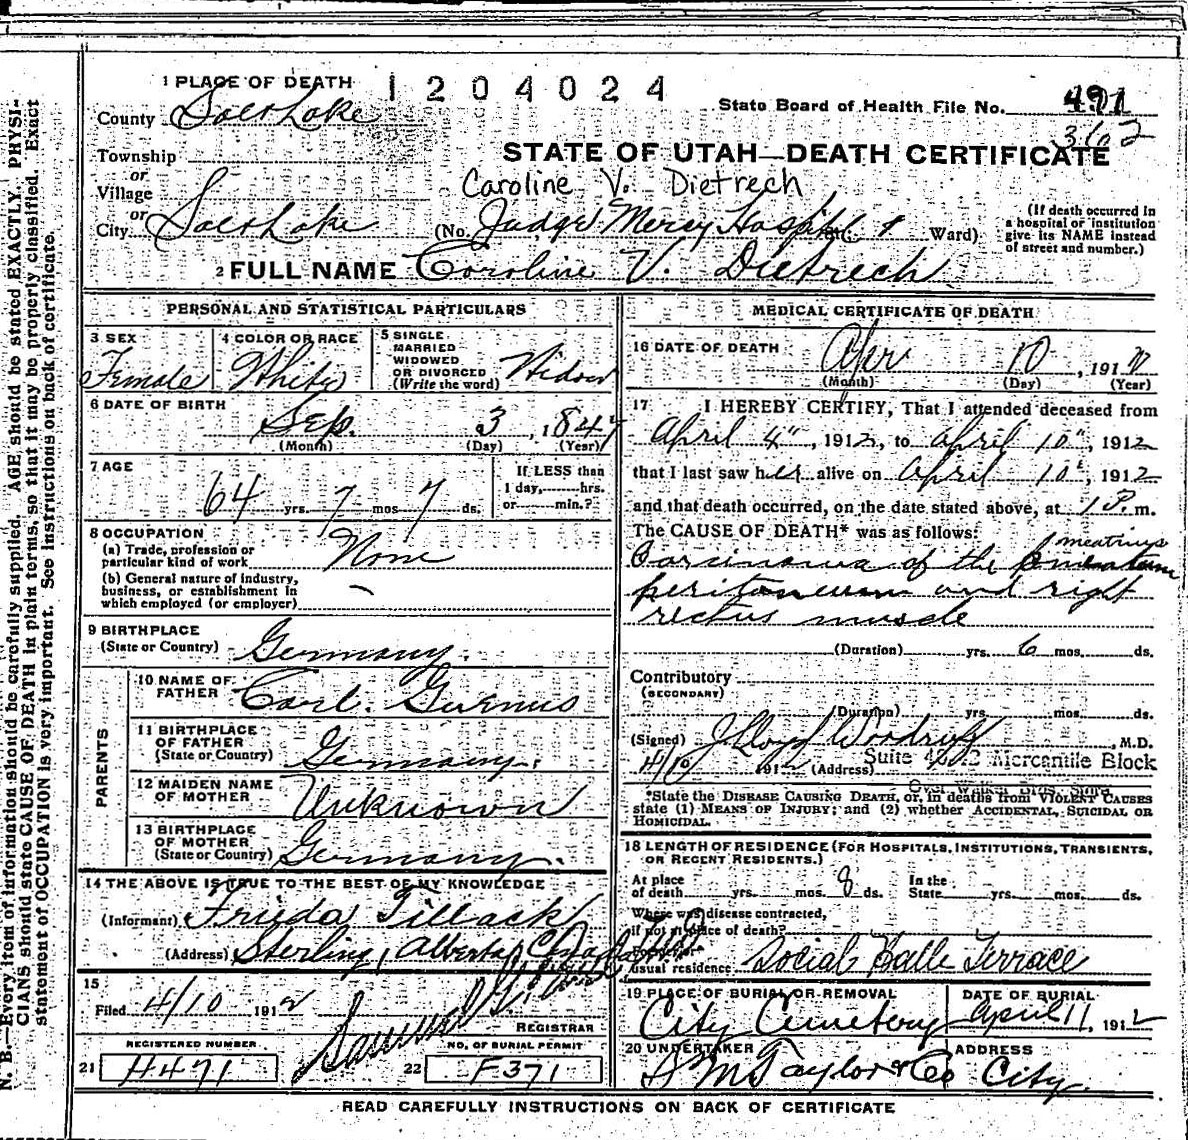 1 PLACE OF DEATH 1204024
State Board of Health File No. 491
County Salt Lake
3602
Township
STATE OF UTAH—DEATH CERTIFICATE
or
Village
Caroline V. Dietrech
or
City Salt Lake (No. Judge Mercy Hospital St. Ward)
(If death occurred in a hospital or institution give its NAME instead of street and number.)
2 FULL NAME Caroline V. Dietrech
PERSONAL AND STATISTICAL PARTICULARS
3 SEX Female
4 COLOR OR RACE White
5 SINGLE MARRIED WIDOWED OR DIVORCED (Write the word) Widow
6 DATE OF BIRTH Sep. 3, 1847
(Month) (Day) (Year)
7 AGE 64 yrs. 7 mos 7 ds.
If LESS than 1 day, hrs. or min.?
8 OCCUPATION
(a) Trade, profession or particular kind of work None
(b) General nature of industry, business, or establishment in which employed (or employer) —
9 BIRTHPLACE
(State or Country) Germany.
PARENTS
10 NAME OF FATHER Carl
11 BIRTHPLACE OF FATHER (State or Country) Germany.
12 MAIDEN NAME OF MOTHER Unknown
13 BIRTHPLACE OF MOTHER (State or Country) Germany.
14 THE ABOVE IS TRUE TO THE BEST OF MY KNOWLEDGE
(Informant) Frieda Tillack
(Address) Sterling, Alberta, Canada
15
Filed 4/10 1912
REGISTRAR
REGISTERED NUMBER NO. OF BURIAL PERMIT
21 H471 22 F371
MEDICAL CERTIFICATE OF DEATH
16 DATE OF DEATH Apr 10, 1912
(Month) (Day) (Year)
17 I HEREBY CERTIFY, That I attended deceased from
April 4", 1912, to April 10", 1912
that I last saw her alive on April 10", 1912
and that death occurred, on the date stated above, at 1 P. m.
The CAUSE OF DEATH* was as follows:
Carcinoma of the
peritoneum and right
rectus muscle
(Duration) yrs. 6 mos. ds.
Contributory
(SECONDARY)
(Duration) yrs. mos. ds.
(Signed) J Lloyd Woodruff, M.D.
4/10 1912 (Address) Suite Mercantile Block
Over Walker Bros. Store
*State the DISEASE CAUSING DEATH, or, in deaths from VIOLENT CAUSES state (1) MEANS OF INJURY; and (2) whether ACCIDENTAL, SUICIDAL OR HOMICIDAL.
18 LENGTH OF RESIDENCE (FOR HOSPITALS, INSTITUTIONS, TRANSIENTS, OR RECENT RESIDENTS.)
At place of death yrs. mos. 8 ds. In the State yrs. mos. ds.
Where was disease contracted,
if not at place of death?
usual residence Social Halle Terrace
19 PLACE OF BURIAL OR REMOVAL City Cemetery
DATE OF BURIAL April 11, 1912
20 UNDERTAKER S M Taylor & Co
ADDRESS City.
READ CAREFULLY INSTRUCTIONS ON BACK OF CERTIFICATE
N. B.—Every item of information should be carefully supplied. AGE should be stated EXACTLY. PHYSI-
CIANS should state CAUSE OF DEATH in plain terms, so that it may be properly classified. Exact
statement of OCCUPATION is very important. See instructions on back of certificate.